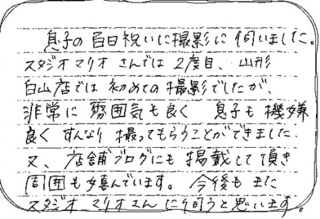 息子の百日祝いに撮影に伺いました。
スタジオマリオさんでは2度目、山形
白山店では初めての撮影でしたが、
非常に雰囲気も良く 息子も機嫌
良く すんなり撮ってもらうことができました。
又、店舗ブログにも掲載して頂き
周囲も喜んでいます。今後もまた
スタジオマリオさんに伺うと思います。